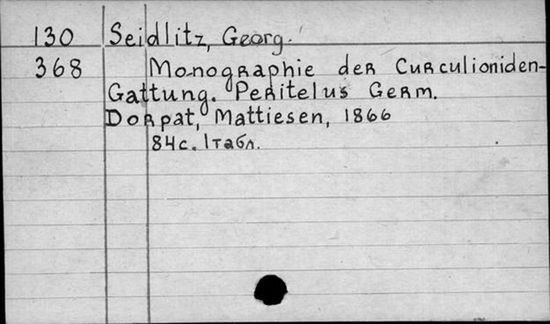 130 Seidlitz, Georg.
368 Monographie der Curculioniden-
Gattung. Peritelus Germ.
Dorpat, Mattiesen, 1866
84с. 1табл.